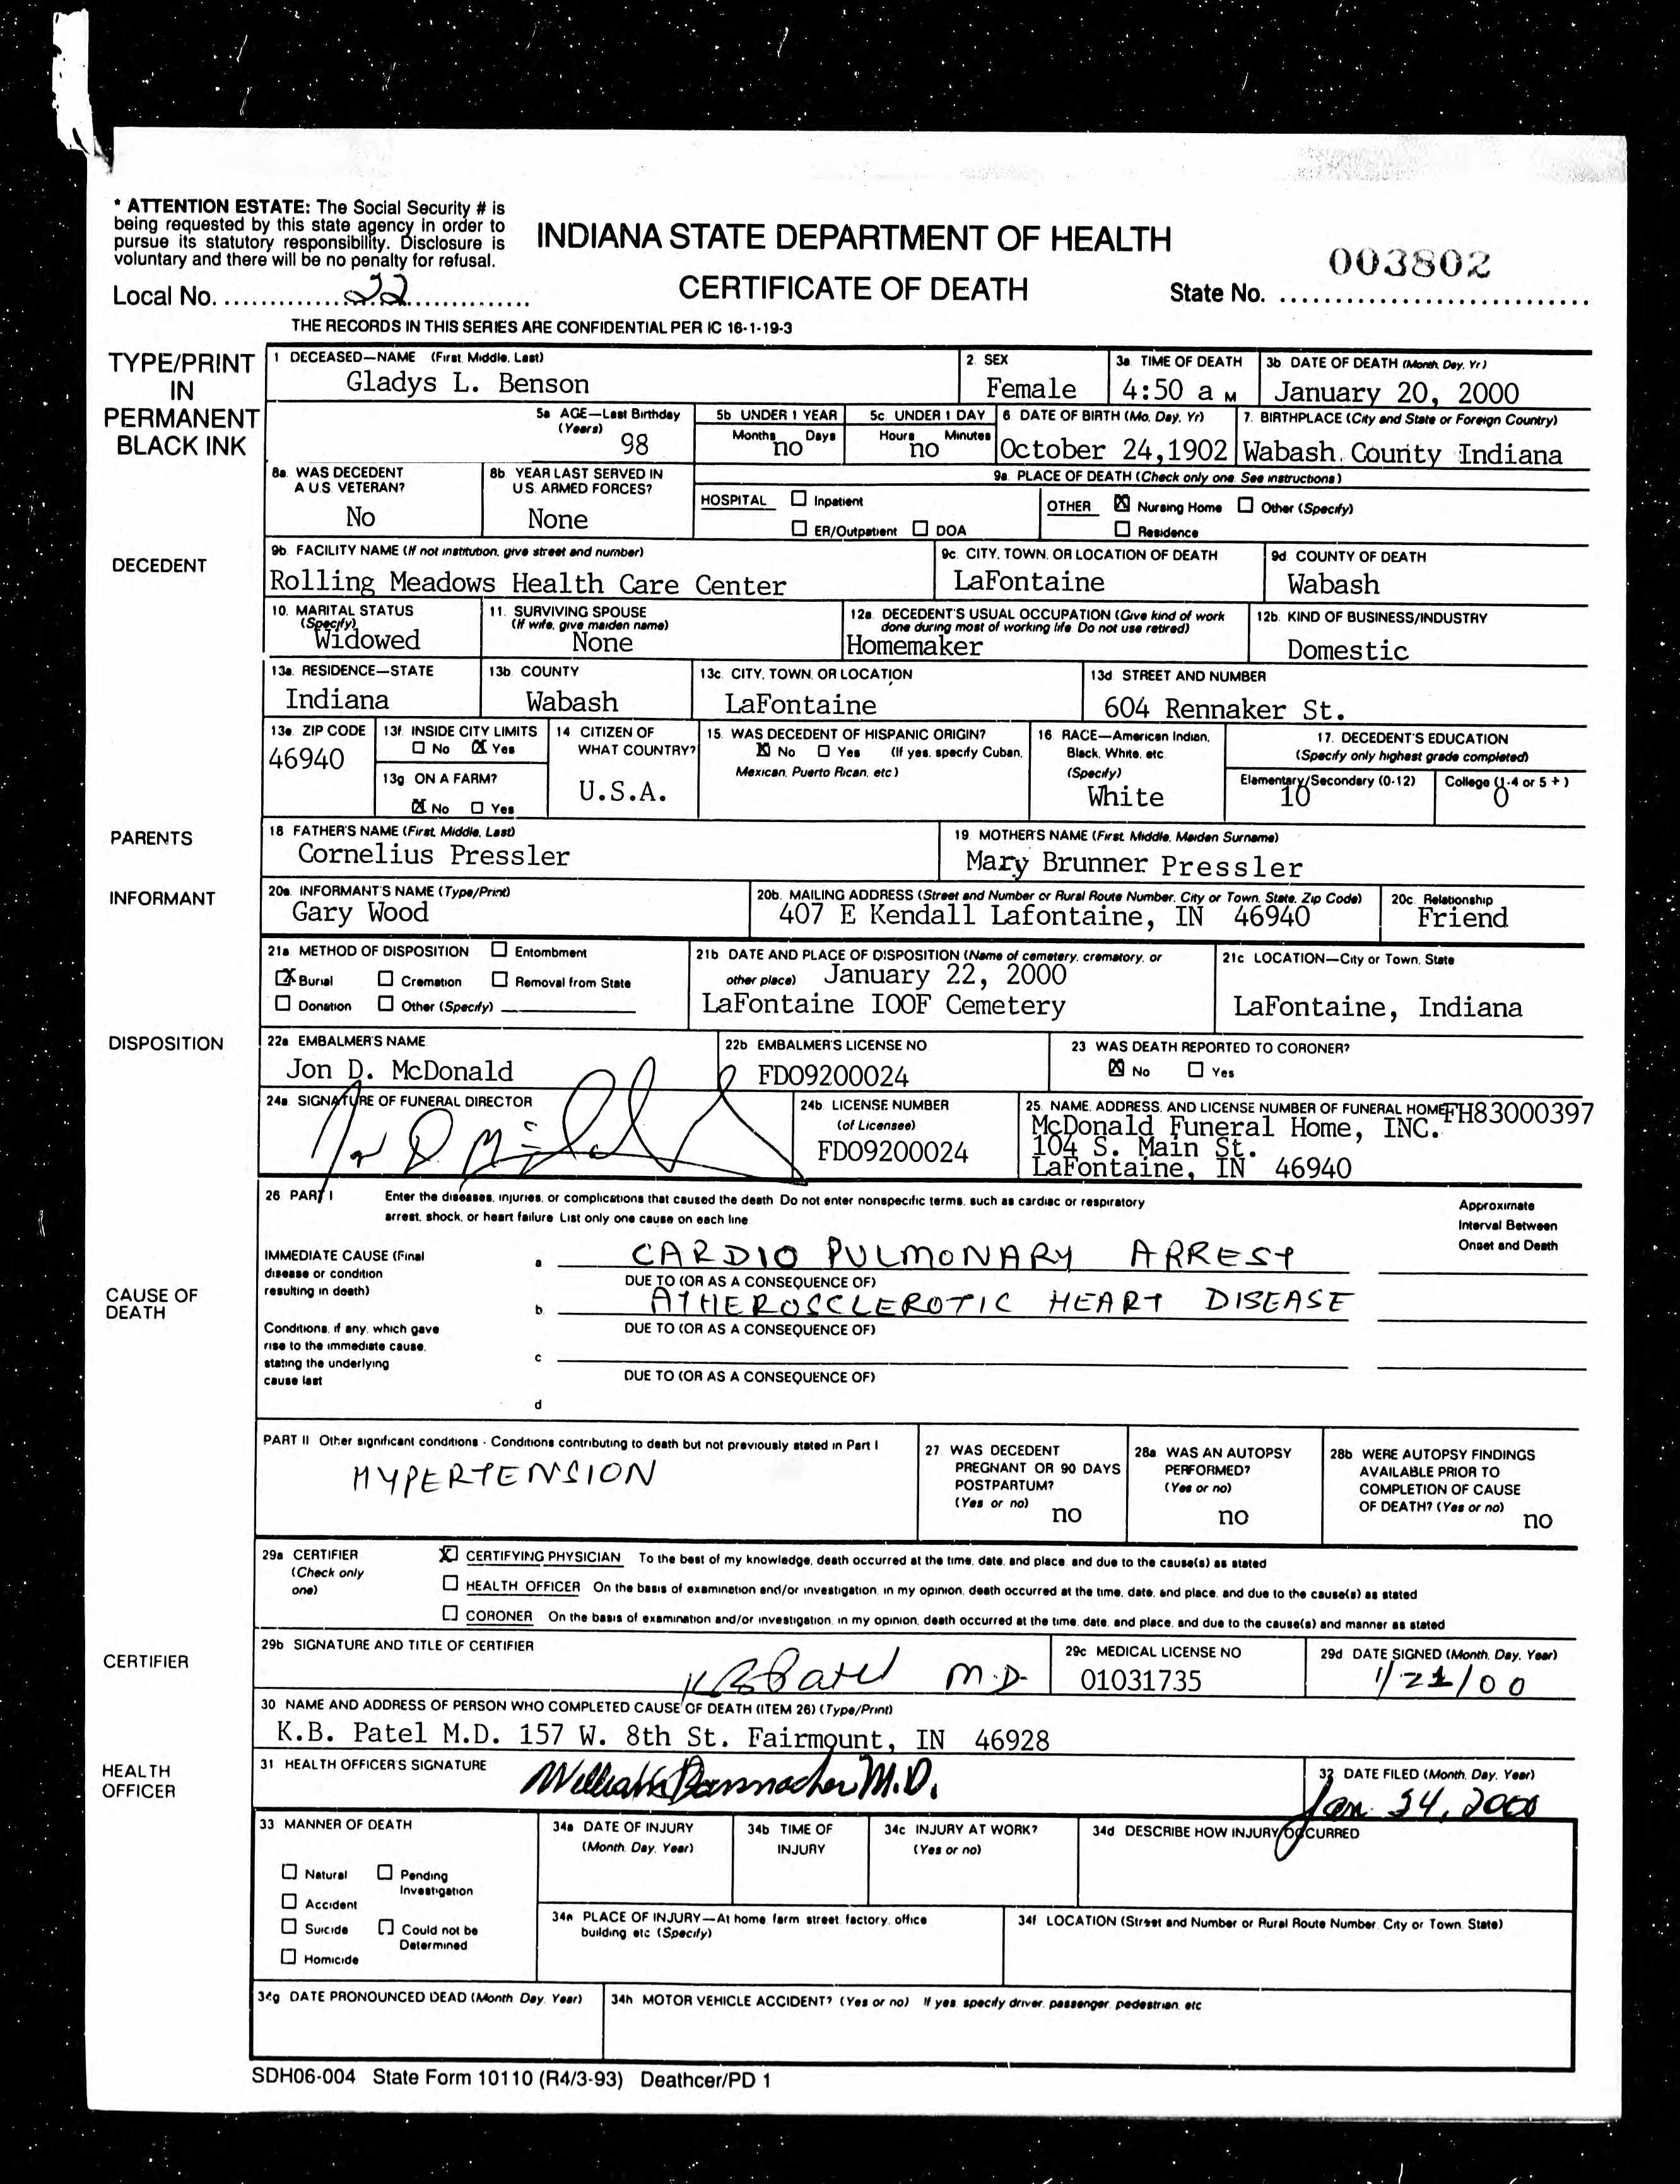 * ATTENTION ESTATE: The Social Security # is
being requested by this state agency in order to
pursue its statutory responsibility. Disclosure is
voluntary and there will be no penalty for refusal.
INDIANA STATE DEPARTMENT OF HEALTH
CERTIFICATE OF DEATH
003802
Local No. 22
State No.
THE RECORDS IN THIS SERIES ARE CONFIDENTIAL PER IC 16-1-19-3
TYPE/PRINT
IN
PERMANENT
BLACK INK
1 DECEASED—NAME (First, Middle, Last)
Gladys L. Benson
2. SEX
Female
3a. TIME OF DEATH
4:50 a M
3b. DATE OF DEATH (Month, Day, Yr)
January 20, 2000
5a AGE—Last Birthday
(Years)
98
5b UNDER 1 YEAR
Months Days
no
5c. UNDER 1 DAY
Hours Minutes
no
6 DATE OF BIRTH (Mo, Day, Yr)
October 24,1902
7. BIRTHPLACE (City and State or Foreign Country)
Wabash County Indiana
8a. WAS DECEDENT
A U.S. VETERAN?
No
8b YEAR LAST SERVED IN
U.S. ARMED FORCES?
None
9a. PLACE OF DEATH (Check only one. See instructions)
HOSPITAL ☐ Inpatient
☐ ER/Outpatient ☐ DOA
OTHER ☒ Nursing Home ☐ Other (Specify)
☐ Residence
DECEDENT
9b. FACILITY NAME (If not institution, give street and number)
Rolling Meadows Health Care Center
9c. CITY, TOWN, OR LOCATION OF DEATH
LaFontaine
9d COUNTY OF DEATH
Wabash
10. MARITAL STATUS
(Specify)
Widowed
11. SURVIVING SPOUSE
(If wife, give maiden name)
None
12a. DECEDENT'S USUAL OCCUPATION (Give kind of work
done during most of working life. Do not use retired)
Homemaker
12b. KIND OF BUSINESS/INDUSTRY
Domestic
13a. RESIDENCE—STATE
Indiana
13b. COUNTY
Wabash
13c. CITY, TOWN, OR LOCATION
LaFontaine
13d STREET AND NUMBER
604 Rennaker St.
13e. ZIP CODE
46940
13f. INSIDE CITY LIMITS
☐ No ☒ Yes
13g ON A FARM?
☒ No ☐ Yes
14 CITIZEN OF
WHAT COUNTRY?
U.S.A.
15. WAS DECEDENT OF HISPANIC ORIGIN?
☒ No ☐ Yes (If yes, specify Cuban,
Mexican, Puerto Rican, etc.)
16. RACE—American Indian,
Black, White, etc.
(Specify)
White
17. DECEDENT'S EDUCATION
(Specify only highest grade completed)
Elementary/Secondary (0-12)
10
College (1-4 or 5+)
0
PARENTS
18 FATHER'S NAME (First, Middle, Last)
Cornelius Pressler
19. MOTHER'S NAME (First, Middle, Maiden Surname)
Mary Brunner Pressler
INFORMANT
20a. INFORMANT'S NAME (Type/Print)
Gary Wood
20b. MAILING ADDRESS (Street and Number or Rural Route Number, City or Town, State, Zip Code)
407 E Kendall Lafontaine, IN 46940
20c. Relationship
Friend
21a METHOD OF DISPOSITION ☐ Entombment
☒ Burial ☐ Cremation ☐ Removal from State
☐ Donation ☐ Other (Specify)
21b DATE AND PLACE OF DISPOSITION (Name of cemetery, crematory, or
other place) January 22, 2000
LaFontaine IOOF Cemetery
21c LOCATION—City or Town, State
LaFontaine, Indiana
DISPOSITION
22a. EMBALMER'S NAME
Jon D. McDonald
22b EMBALMER'S LICENSE NO.
FD09200024
23 WAS DEATH REPORTED TO CORONER?
☒ No ☐ Yes
24a. SIGNATURE OF FUNERAL DIRECTOR
24b LICENSE NUMBER
(of Licensee)
FD09200024
25. NAME, ADDRESS, AND LICENSE NUMBER OF FUNERAL HOME FH83000397
McDonald Funeral Home, INC.
104 S. Main St.
LaFontaine, IN 46940
26 PART I Enter the diseases, injuries, or complications that caused the death. Do not enter nonspecific terms, such as cardiac or respiratory
arrest, shock, or heart failure. List only one cause on each line.
Approximate
Interval Between
Onset and Death
CAUSE OF
DEATH
IMMEDIATE CAUSE (Final
disease or condition
resulting in death)
a CARDIO PULMONARY ARREST
DUE TO (OR AS A CONSEQUENCE OF)
b ATHEROSCLEROTIC HEART DISEASE
Conditions, if any, which gave
rise to the immediate cause,
stating the underlying
cause last
DUE TO (OR AS A CONSEQUENCE OF)
c
DUE TO (OR AS A CONSEQUENCE OF)
d
PART II Other significant conditions - Conditions contributing to death but not previously stated in Part I
HYPERTENSION
27. WAS DECEDENT
PREGNANT OR 90 DAYS
POSTPARTUM?
(Yes or no)
no
28a WAS AN AUTOPSY
PERFORMED?
(Yes or no)
no
28b WERE AUTOPSY FINDINGS
AVAILABLE PRIOR TO
COMPLETION OF CAUSE
OF DEATH? (Yes or no)
no
29a CERTIFIER
(Check only
one)
☒ CERTIFYING PHYSICIAN To the best of my knowledge, death occurred at the time, date, and place, and due to the cause(s) as stated
☐ HEALTH OFFICER On the basis of examination and/or investigation, in my opinion, death occurred at the time, date, and place, and due to the cause(s) as stated
☐ CORONER On the basis of examination and/or investigation, in my opinion, death occurred at the time, date, and place, and due to the cause(s) and manner as stated
CERTIFIER
29b SIGNATURE AND TITLE OF CERTIFIER
KBPatel M.D.
29c MEDICAL LICENSE NO
01031735
29d DATE SIGNED (Month, Day, Year)
1/21/00
30 NAME AND ADDRESS OF PERSON WHO COMPLETED CAUSE OF DEATH (ITEM 26) (Type/Print)
K.B. Patel M.D. 157 W. 8th St. Fairmount, IN 46928
HEALTH
OFFICER
31 HEALTH OFFICER'S SIGNATURE
M.D.
32 DATE FILED (Month, Day, Year)
Jan. 24, 2000
33 MANNER OF DEATH
☐ Natural ☐ Pending
Investigation
☐ Accident
☐ Suicide ☐ Could not be
Determined
☐ Homicide
34a DATE OF INJURY
(Month, Day, Year)
34b TIME OF
INJURY
34c INJURY AT WORK?
(Yes or no)
34d DESCRIBE HOW INJURY OCCURRED
34e PLACE OF INJURY—At home, farm, street, factory, office
building, etc (Specify)
34f LOCATION (Street and Number or Rural Route Number, City or Town, State)
34g DATE PRONOUNCED DEAD (Month, Day, Year)
34h MOTOR VEHICLE ACCIDENT? (Yes or no) If yes, specify driver, passenger, pedestrian, etc
SDH06-004 State Form 10110 (R4/3-93) Deathcer/PD 1